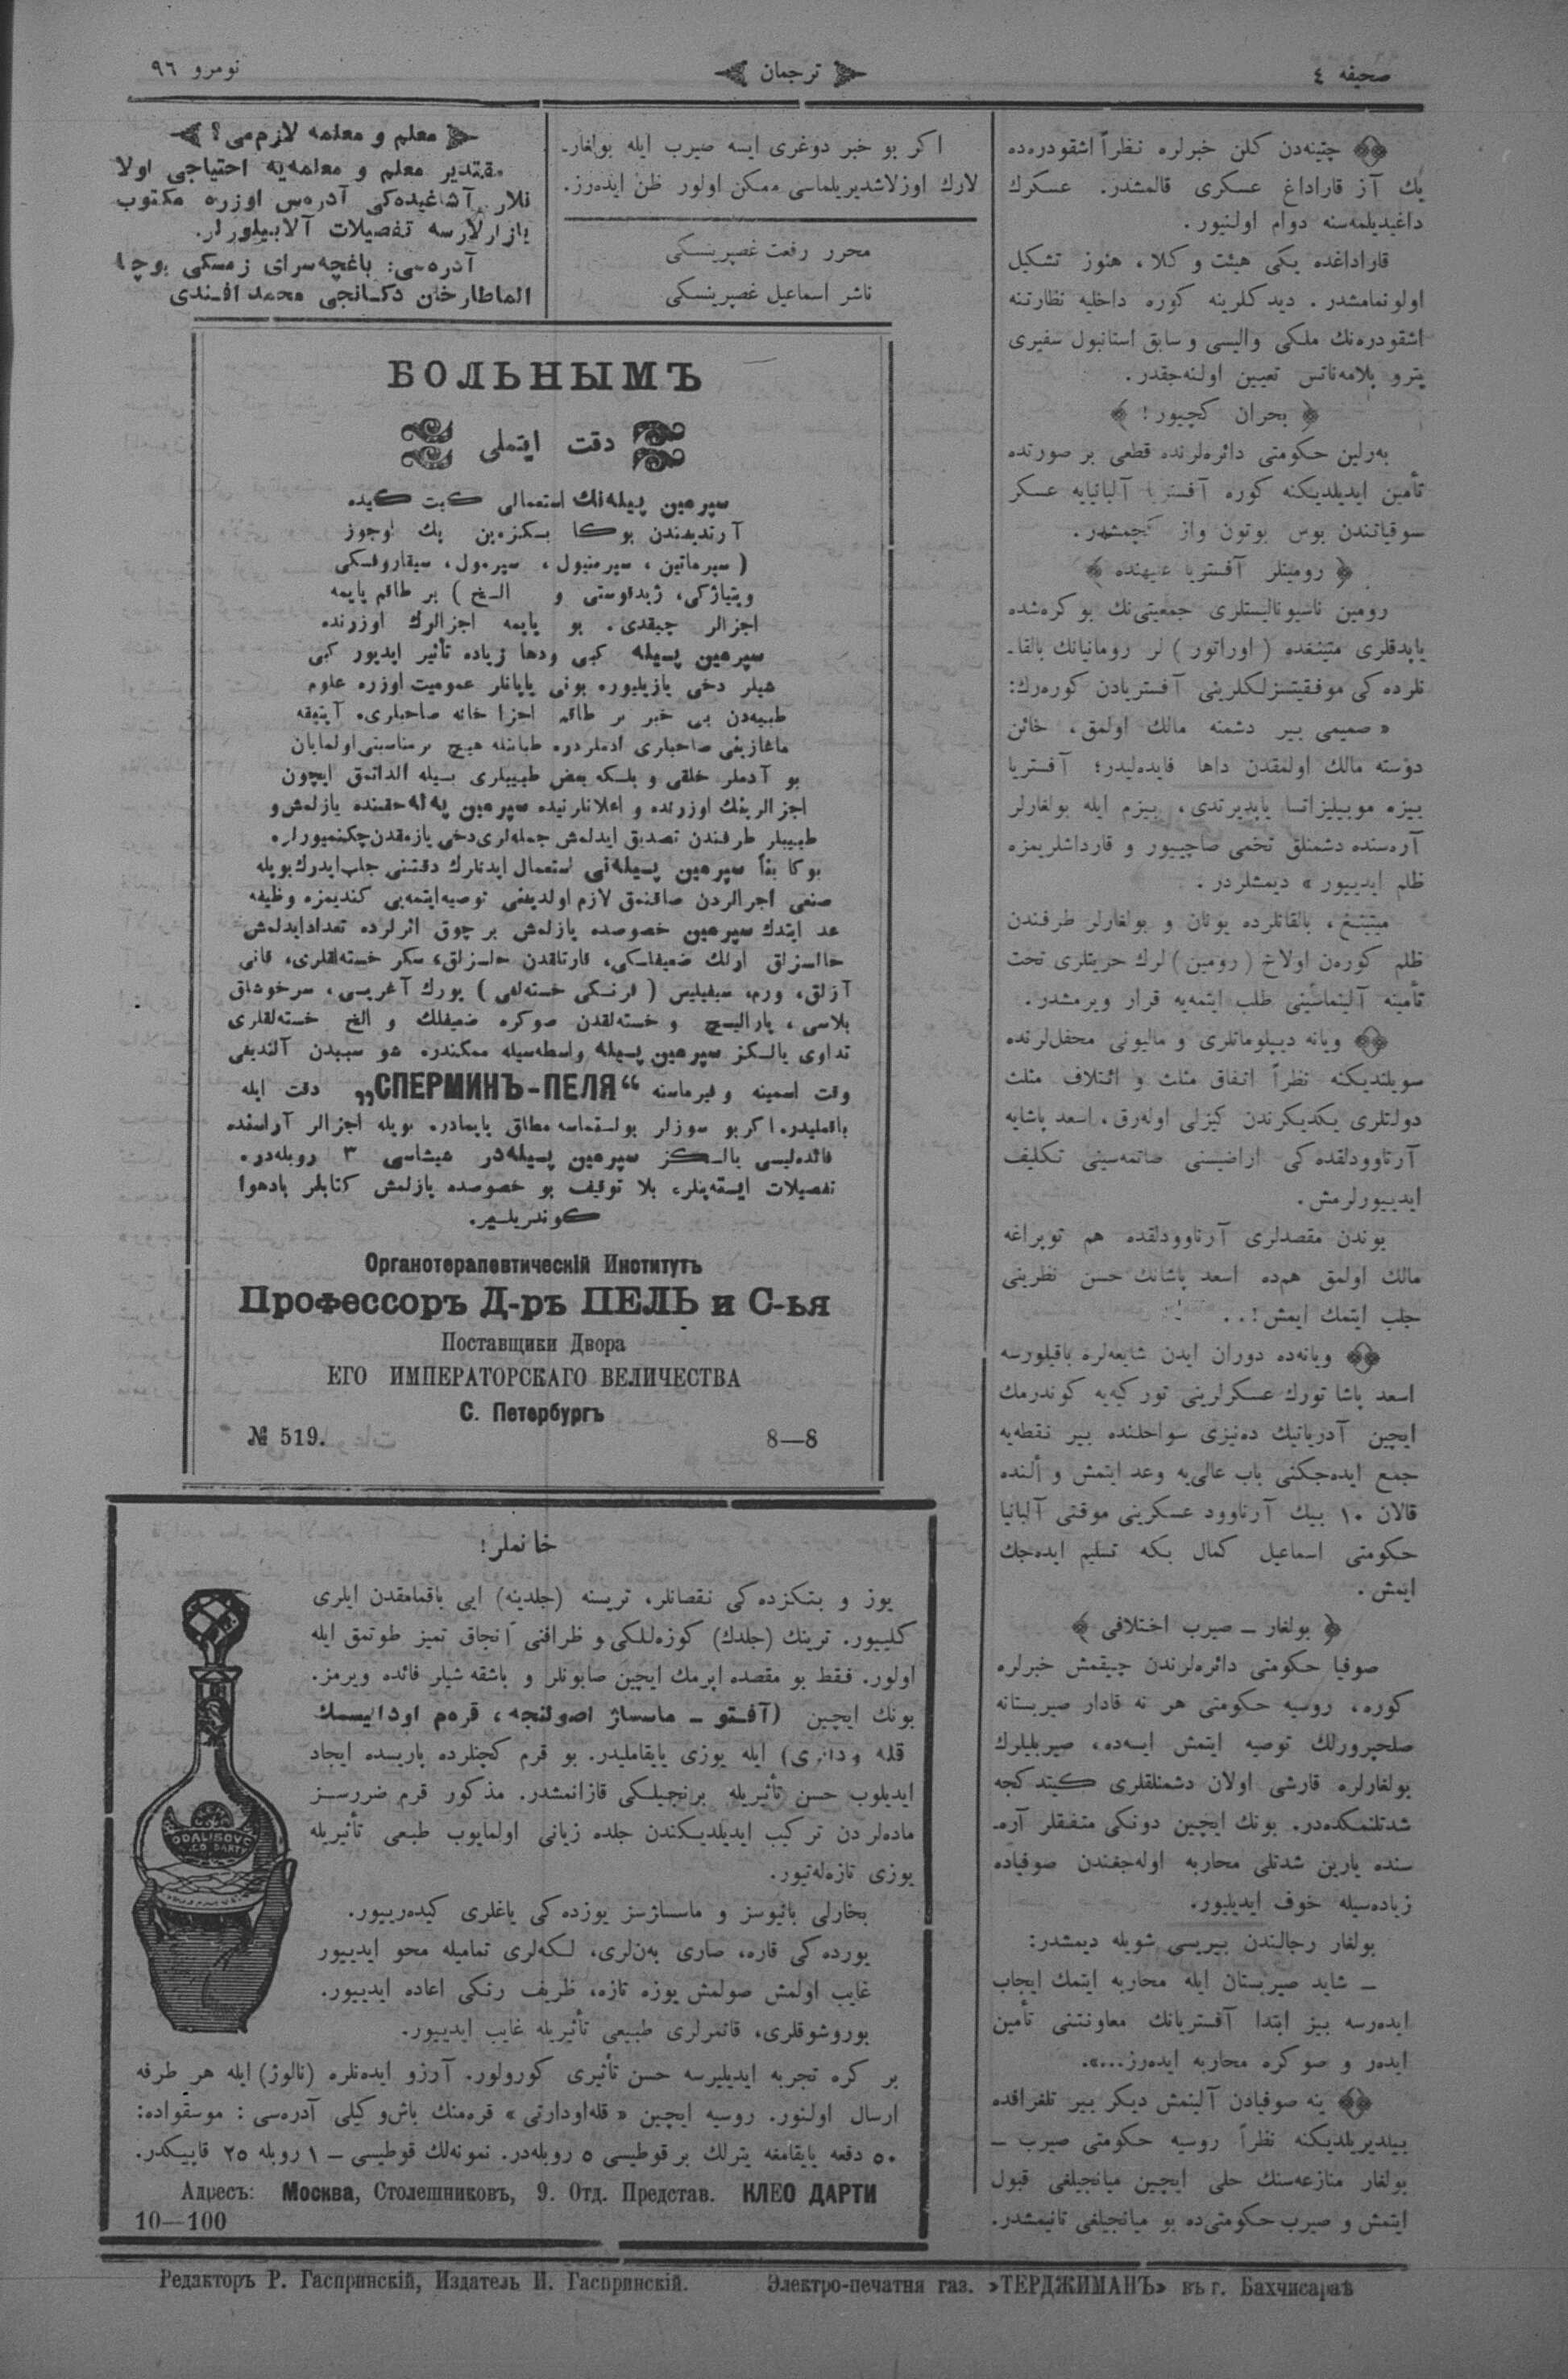 صحیفه ٤
ترجمان
نومرو ٩٦
چتینه‌دن کلن خبرلره نظراً اشقودره‌ده
پك آز قاراداغ عسکری قالمشدر. عسکرك
داغیدیلمه‌سنه دوام اولنیور.
قاراداغده یکی هیئت وکلا، هنوز تشکیل
اولونمامشدر. دیدکلرینه کوره داخلیه نظارتنه
اشقودره‌نك ملکی والیسی و سابق استانبول سفیری
پترو پلامه‌ناتس تعیین اولنه‌جقدر.
﴿ بحران کچیور! ﴾
به‌رلین حکومتی دائره‌لرنده قطعی بر صورتده
تأمین ایدیلدیکنه کوره آفستریا آلبانیایه عسکر
سوقیاتندن بوس بوتون واز کچمشدر.
﴿ رومینلر آفستریا علیهنده ﴾
رومین ناسیونالیستلری جمعیتی‌نك بو کره‌شده
یاپدقلری میتینغده (اوراتور) لر رومانیانك بالقا-
نلرده‌کی موفقیتسزلکلرینی آفستریادن کوره‌رك:
« صمیمی بیر دشمنه مالك اولمق، خائن
دوسته مالك اولمقدن داها فایده‌لیدر؛ آفستریا
بیزه موبیلیزاتسیا یاپدیرتدی، بیزم ایله بولغارلر
آره‌سنده دشمنلق تخمی صاچییور و قارداشلریمزه
ظلم ایدییور» دیمشلردر.
میتینغ، بالقانلرده یونان و بولغارلر طرفندن
ظلم کوره‌ن اولاخ (رومین) لرك حریتلری تحت
تأمینه آلینماسینی طلب ایتمه‌یه قرار ویرمشدر.
ویانه دیپلوماتلری و مالیونی محفل‌لرنده
سویلندیکنه نظراً اتفاق مثلث و ائتلاف مثلث
دولتلری یکدیکرندن کیزلی اوله‌رق، اسعد پاشایه
آرناوودلقده‌کی اراضیسنی صاتمه‌سینی تکلیف
ایدییورلرمش.
بوندن مقصدلری آرناوودلقده هم توپراغه
مالك اولمق همده اسعد پاشانك حسن نظرینی
جلب ایتمك ایمش!..
ویانه‌ده دوران ایدن شایعه‌لره باقیلورسه
اسعد پاشا تورك عسکرلرینی تورکیه‌یه کوندرمك
ایچین آدریاتیك ده‌نیزی سواحلنده بیر نقطه‌یه
جمع ایده‌جکنی باب عالی‌یه وعد ایتمش و ألنده
قالان ١٠ بیك آرناوود عسکرینی موقتی آلبانیا
حکومتی اسماعیل کمال بکه تسلیم ایده‌جك
ایمش.
﴿ بولغار ـ صیرب اختلافی ﴾
صوفیا حکومتی دائره‌لرندن چیقمش خبرلره
کوره، روسیه حکومتی هر نه قادار صیربستانه
صلحپرورلك توصیه ایتمش ایسه‌ده، صیربلیلرك
بولغارلره قارشی اولان دشمنلقلری کیتدکجه
شدتلنمکده‌در. بونك ایچین دونکی متفقلر آره-
سنده یارین شدتلی محاربه اوله‌جغندن صوفیاده
زیاده‌سیله خوف ایدیلیور.
بولغار رجالیندن بیریسی شویله دیمشدر:
ـ شاید صیربستان ایله محاربه ایتمك ایجاب
ایده‌رسه بیز ابتدا آفستریانك معاونتنی تأمین
ایده‌ر و صوکره محاربه ایده‌رز...».
ینه صوفیادن آلینمش دیکر بیر تلغرافده
بیلدیریلدیکنه نظراً روسیه حکومتی صیرب ـ
بولغار منازعه‌سنك حلی ایچین میانجیلغی قبول
ایتمش و صیرب حکومتی‌ده بو میانجیلغی تانیمشدر.
اکر بو خبر دوغری ایسه صیرب ایله بولغار-
لارك اوزلاشدیریلماسی ممکن اولور ظن ایده‌رز.
محرر رفعت غصپرینسکی
ناشر اسماعیل غصپرینسکی
معلم و معلمه لازم‌می؟
مقتدیر معلم و معلمه‌یه احتیاجی اولا
نلار آشاغیده‌کی آدره‌س اوزره مکتوب
یازارلارسه تفصیلات آلابیلورلر.
آدره‌سی: باغچه‌سرای زمسکی پوچتا
الماطارخان دکانجی محمد افندی
БОЛЬНЫМЪ
دقت ایتملی
سپرمین پیله‌نك استعمالی کیت کیده
آرتدیغندن بوکا بکزه‌ین پك اوجوز
(سپرماتین، سپرمنیول، سپرمول، سیقاروفسکی
ویتیاژکی، ژیدقوستی و الخ) بر طاقم یاپمه
اجزالر چیقدی. بو یاپمه اجزالرك اوزرنده
سپرمین پیله کبی ودها زیاده تأثیر ایدیور کبی
شیلر دخی یازیلیور. بونی یاپانلر عمومیت اوزره علوم
طبیه‌دن بی خبر بر طاقم اجزا خانه صاحبلری، آپتیقه
ماغازینی صاحبلری آدملردر. طبابتله هیچ بر مناسبتی اولمایان
بو آدملر خلقی و بلکه بعض طبیبلری بیله آلداتمق ایچون
اجزالرینك اوزرنده و اعلانلرنیده سپرمین پیله حقنده یازلمش و
طبیبلر طرفندن تصدیق ایدلمش جمله‌لری دخی یازمقدن چکنمیورلر.
بوکا بناً سپرمین پیله‌نی استعمال ایدنلرك دقتنی جلب ایدرك بویله
صنعی اجزالردن صاقنمق لازم اولدیغنی توصیه ایتمه‌یی کندیمزه وظیفه
عد ایتدك سپرمین خصوصده یازلمش بر چوق اثرلرده تعداد ایدلمش
حالسزلق ارلك ضعیفلکی، قارتلقدن حالسزلق، سکر خسته‌لقلری، قانی
آزلق، ورم، سیفیلیس (فرنکی خسته‌لغی) یورك آغریسی، سرخوشلق
بلاسی، پارالیچ و خسته‌لقدن صوکره ضعیفلك و الخ خسته‌لقلری
تداوی یالکز سپرمین پیله واسطه‌سیله ممکندر. شو سببدن آلندیغی
وقت اسمینه و فیرماسنه „СПЕРМИНЪ-ПЕЛЯ“ دقت ایله
باقملیدر. اکر بو سوزلر بولنماسه مطلق یاپمادر. بویله اجزالر آراسنده
فائده‌لیسی یالکز سپرمین پیله‌در شیشاسی ٣ روبله‌در.
تفصیلات ایسته‌ینلر، بلا توقیف بو خصوصده یازلمش کتابلر بادهوا
کوندریلیر.
Органотерапевтическій Институтъ
Профессоръ Д-ръ ПЕЛЬ и С-ья
Поставщики Двора
ЕГО ИМПЕРАТОРСКАГО ВЕЛИЧЕСТВА
С. Петербургъ
№ 519.
8—8
خانملر!
یوز و بتکزده‌کی نقصانلر، تریسنه (جلدینه) ایی باقمامقدن ایلری
کلییور. ترینك (جلدك) کوزه‌للکی و ظرافتی آنجاق تمیز طوتمق ایله
اولور. فقط بو مقصده ایرمك ایچین صابونلر و باشقه شیلر فائده ویرمز.
بونك ایچین (آفتو ـ ماسساژ اصولنجه، قره‌م اودالیسمك
قله‌ودارتی) ایله یوزی یایقاملیدر. بو قرم کچنلرده پاریسده ایجاد
ایدیلوب حسن تأثیریله برنجیلکی قازانمشدر. مذکور قرم ضررسز
ماده‌لردن ترکیب ایدیلدیکندن جلده زیانی اولمایوب طبیعی تأثیریله
یوزی تازه‌له‌تیور.
بخارلی بانیوسز و ماسساژسز یوزده‌کی یاغلری کیده‌رییور.
یوزده‌کی قاره، صاری به‌ن‌لری، لکه‌لری تمامیله محو ایدییور
غایب اولمش صولمش یوزه تازه، ظریف رنکی اعاده ایدییور.
بوروشوقلری، قاتمرلری طبیعی تأثیریله غایب ایدییور.
بر کره تجربه ایدیلیرسه حسن تأثیری کورولور. آرزو ایده‌نلره (نالوژ) ایله هر طرفه
ارسال اولنور. روسیه ایچین « قله‌اودارتی » قره‌منك باش‌وکیلی آدره‌سی: موسقواده:
٥٠ دفعه یایقامغه یترلك بر قوطیسی ٥ روبله‌در. نمونه‌لك قوطیسی ـ ١ روبله ٢٥ قاپیکدر.
ODALISOVC
CO DARTI
Адресъ: Москва, Столешниковъ, 9. Отд. Представ. КЛЕО ДАРТИ
10—100
Редакторъ Р. Гаспринскій, Издатель И. Гаспринскій.
Электро-печатня газ. »ТЕРДЖИМАНЪ» въ г. Бахчисараѣ